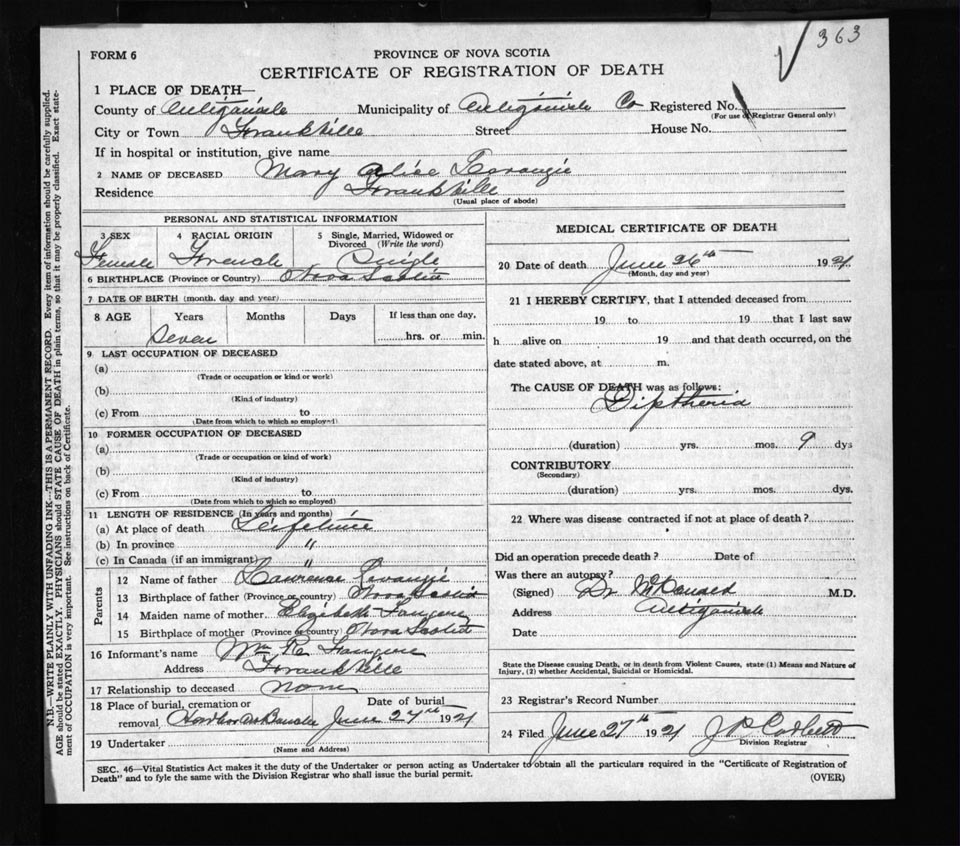 363
FORM 6
PROVINCE OF NOVA SCOTIA
CERTIFICATE OF REGISTRATION OF DEATH
1 PLACE OF DEATH—
County of Antigonish Municipality of Antigonish Co Registered No.
(For use of Registrar General only)
City or Town Frankville Street House No.
If in hospital or institution, give name
2 NAME OF DECEASED Mary Alice
Residence Frankville
(Usual place of abode)
PERSONAL AND STATISTICAL INFORMATION
3 SEX 4 RACIAL ORIGIN 5 Single, Married, Widowed or Divorced (Write the word)
Female French Single
6 BIRTHPLACE (Province or Country) Nova Scotia
7 DATE OF BIRTH (month, day and year)
8 AGE Years Months Days If less than one day,
Seven hrs. or min.
9 LAST OCCUPATION OF DECEASED
(a)
(Trade or occupation or kind or work)
(b)
(Kind of industry)
(c) From to
(Date from which to which so employed)
10 FORMER OCCUPATION OF DECEASED
(a)
(Trade or occupation or kind of work)
(b)
(Kind of industry)
(c) From to
(Date from which to which so employed)
11 LENGTH OF RESIDENCE (In years and months)
(a) At place of death Lifetime
(b) In province "
(c) In Canada (if an immigrant) "
Parents
12 Name of father Lawrence
13 Birthplace of father (Province or country) Nova Scotia
14 Maiden name of mother Elizabeth
15 Birthplace of mother (Province or country) Nova Scotia
16 Informant's name Wm
Address Frankville
17 Relationship to deceased none
18 Place of burial, cremation or Date of burial
removal June 27th 1921
19 Undertaker
(Name and Address)
MEDICAL CERTIFICATE OF DEATH
20 Date of death June 26th 1921
(Month, day and year)
21 I HEREBY CERTIFY, that I attended deceased from
19 to 19 that I last saw
h alive on 19 and that death occurred, on the
date stated above, at m.
The CAUSE OF DEATH was as follows:
Diptheria
(duration) yrs. mos. 9 dys
CONTRIBUTORY
(Secondary)
(duration) yrs. mos. dys.
22 Where was disease contracted if not at place of death?
Did an operation precede death? Date of
Was there an autopsy?
(Signed) Dr McDonald M.D.
Address Antigonish
Date
State the Disease causing Death, or in death from Violent Causes, state (1) Means and Nature of
Injury, (2) whether Accidental, Suicidal or Homicidal.
23 Registrar's Record Number
24 Filed June 27th 1921 Corbett
Division Registrar
SEC. 46—Vital Statistics Act makes it the duty of the Undertaker or person acting as Undertaker to obtain all the particulars required in the "Certificate of Registration of
Death" and to fyle the same with the Division Registrar who shall issue the burial permit.
(OVER)
N.B.—WRITE PLAINLY WITH UNFADING INK—THIS IS A PERMANENT RECORD. Every item of information should be carefully supplied.
AGE should be stated EXACTLY. PHYSICIANS should STATE CAUSE OF DEATH in plain terms, so that it may be properly classified. Exact statement
of OCCUPATION is very important. See instructions on back of Certificate.